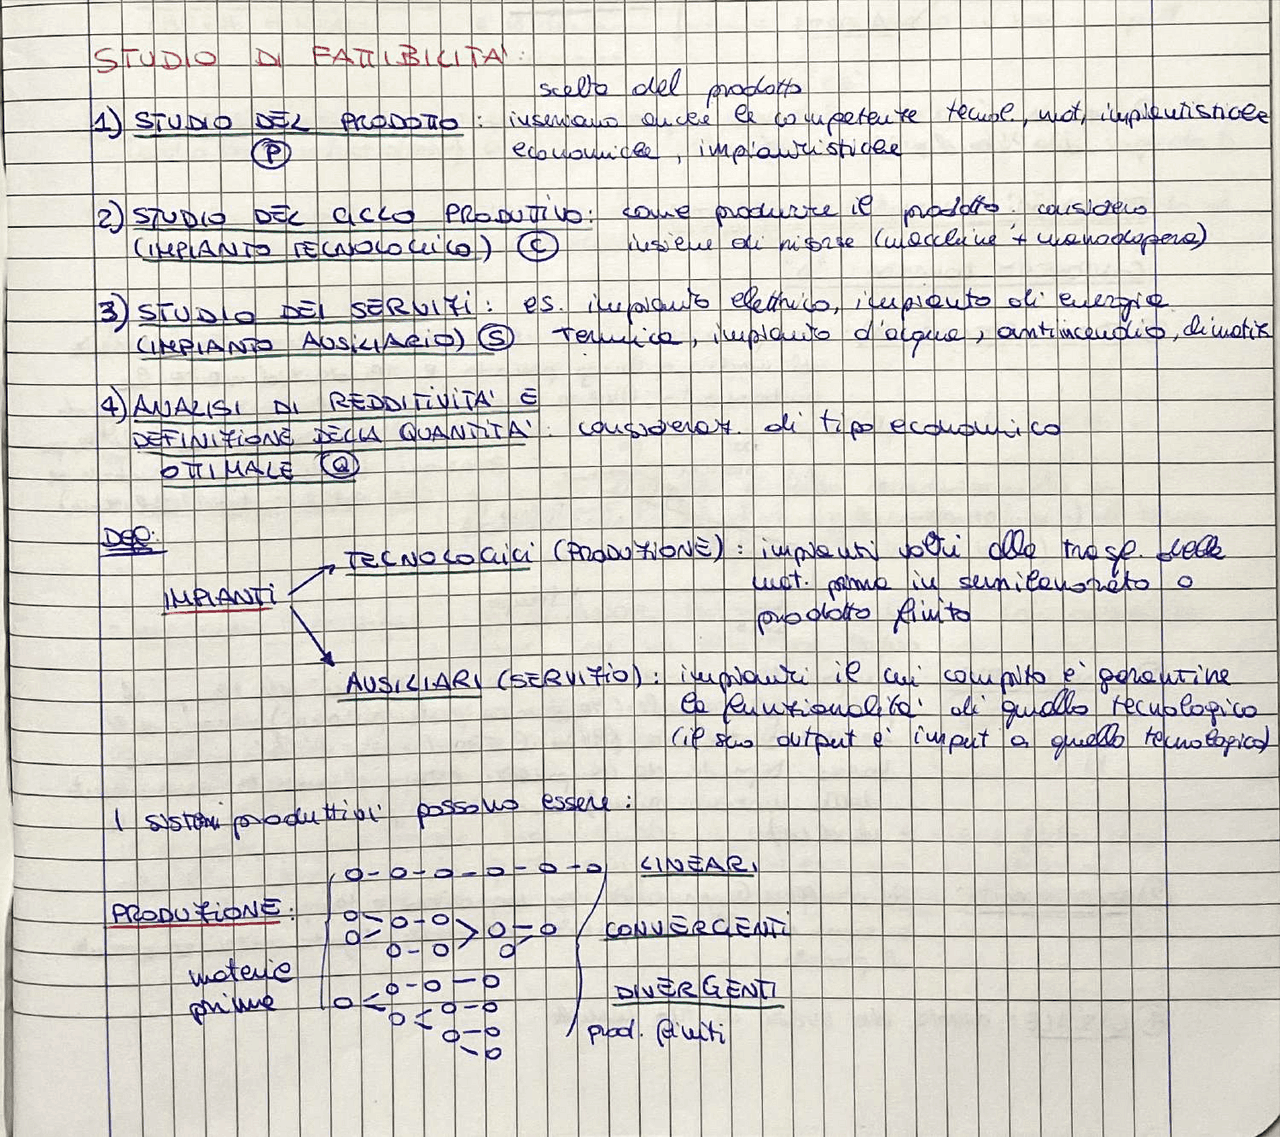 STUDIO DI FATTIBILITA':
scelta del prodotto
1) STUDIO DEL PRODOTTO : inseriamo anche le competenze tecnol, mat, impiantistiche
P economiche, impiantistiche
2) STUDIO DEL CICLO PRODUTTIVO: come produrre il prodotto. considero
(IMPIANTO TECNOLOGICO) C insieme di risorse (macchine + manodopera)
3) STUDIO DEI SERVIZI: es. impianto elettrico, impianto di energia
(IMPIANTO AUSILIARIO) S termica, impianto d'acqua, antincendio, climatiz
4) ANALISI DI REDDITIVITA' E
DEFINIZIONE DELLA QUANTITA': consideraz. di tipo economico
OTTIMALE Q
Def:
TECNOLOGICI (PRODUZIONE): impianti volti alla trasf. delle
IMPIANTI mat. prime in semilavorato o
prodotto finito
AUSILIARI (SERVIZIO): impianti il cui compito è garantire
la funzionalità di quello tecnologico
(il suo output è input a quello tecnologico)
I sistemi produttivi possono essere:
LINEARI
PRODUZIONE:
CONVERGENTI
materie
DIVERGENTI
prime
prod. finiti